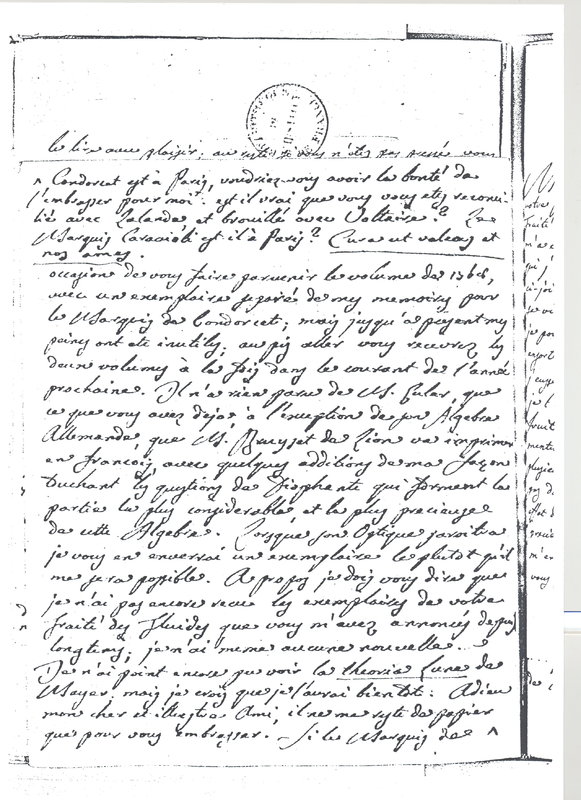 le lire avec plaisir; au reste si vous n'êtes pas pressé vous
^ Condorcet est à Paris, voudriez-vous avoir la bonté de
l'embrasser pour moi. est il vrai que vous vous etes reconci-
lié avec Lalande et brouillé avec Voltaire? Le
Marquis Caraccioli est il à Paris? Cura ut valeas et
nos ames.
occasion de vous faire parvenir le volume de 1768,
avec un exemplaire separé de mes memoires pour
le Marquis de Condorcet; mais jusqu'à présent mes
peines ont eté inutiles; au pis aller vous recevrez les
deux volumes à la fois dans le courant de l'année
prochaine. Il n'a rien paru de M. Euler, que
ce que vous avez deja à l'exception de son Algebre
Allemande, que M. Bruyset de Lion va imprimer
en françois, avec quelques additions de ma façon
touchant les questions de Diophante qui forment la
partie la plus considerable et la plus precieuse
de cette Algebre. Lorsque son Optique paroitra
je vous en enverrai un exemplaire le plutot qu'il
me sera possible. A propos je dois vous dire que
je n'ai pas encore recu les exemplaires de votre
traité des fluides que vous m'avez annoncés depuis
longtems; je n'ai meme aucune nouvelle...
Je n'ai point encore pu voir la theoria Lunæ de
Mayer mais je crois que je l'aurai bientot. Adieu
mon cher et illustre Ami, il ne me reste de papier
que pour vous embrasser. – Si le Marquis de ^